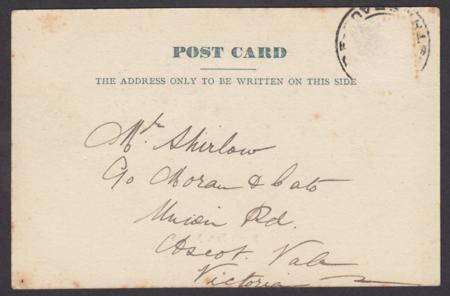 POST CARD
THE ADDRESS ONLY TO BE WRITTEN ON THIS SIDE
Mr Shirlow
c/o Moran & Cato
Union Rd.
Ascot Vale
Victoria